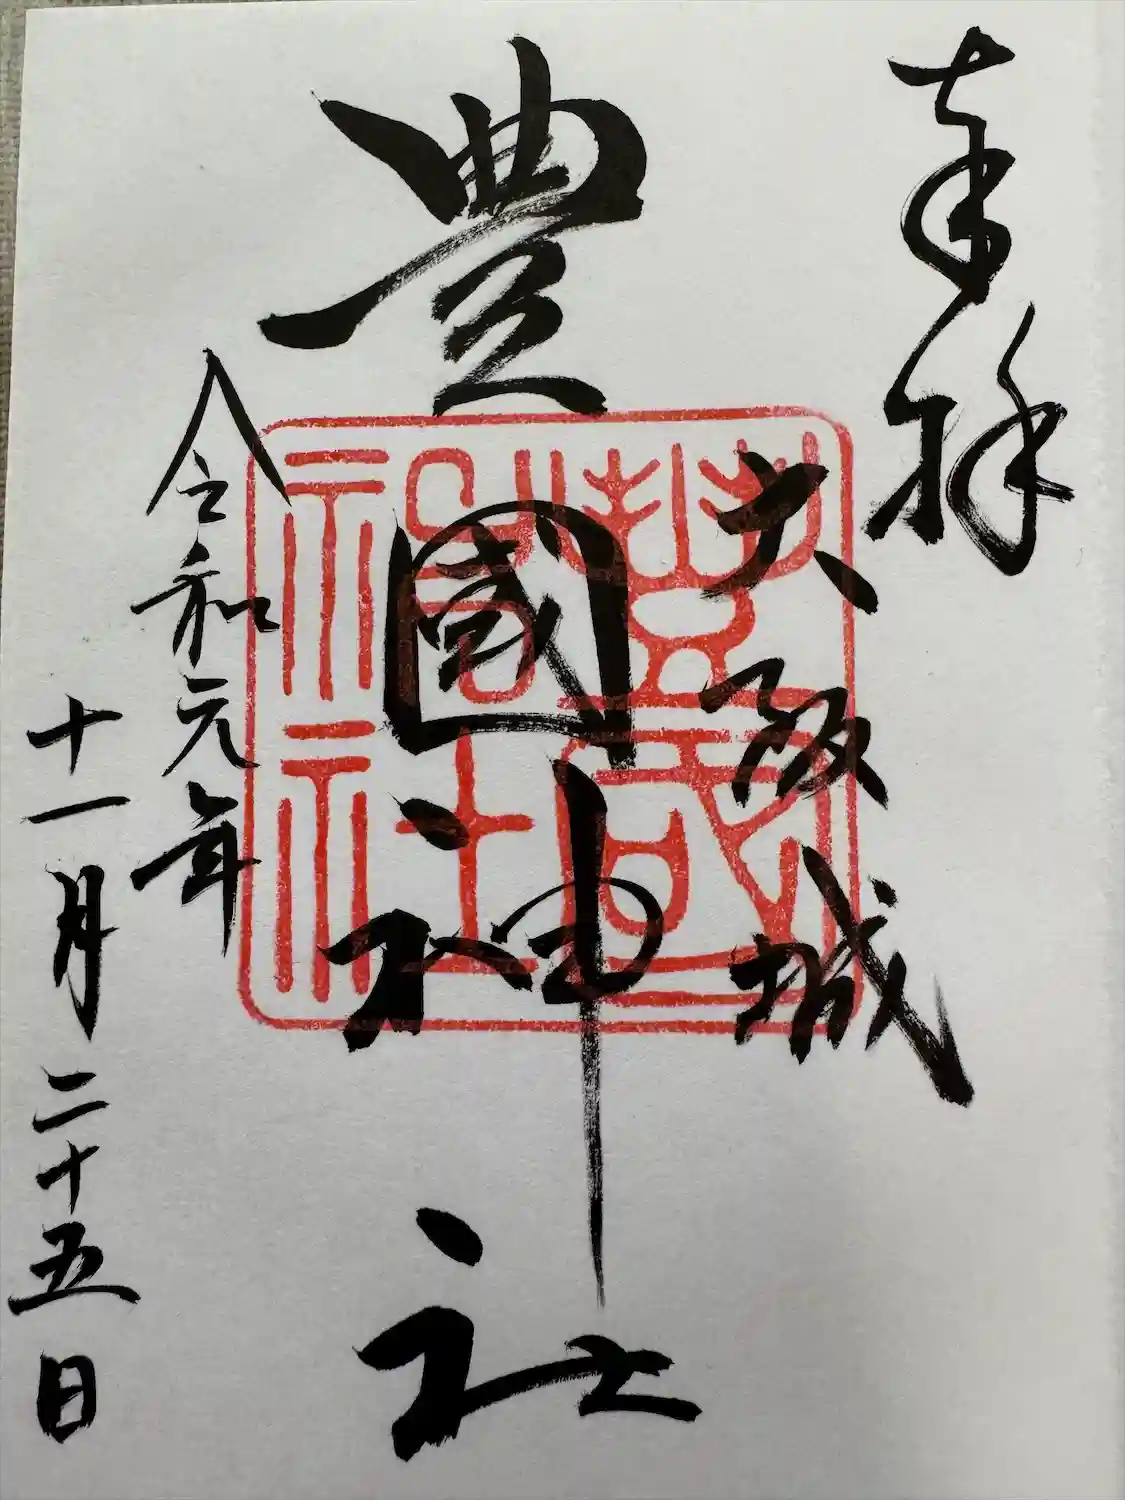 奉拝
大阪城
豊國神社
豊國神社
令和元年
十一月二十五日